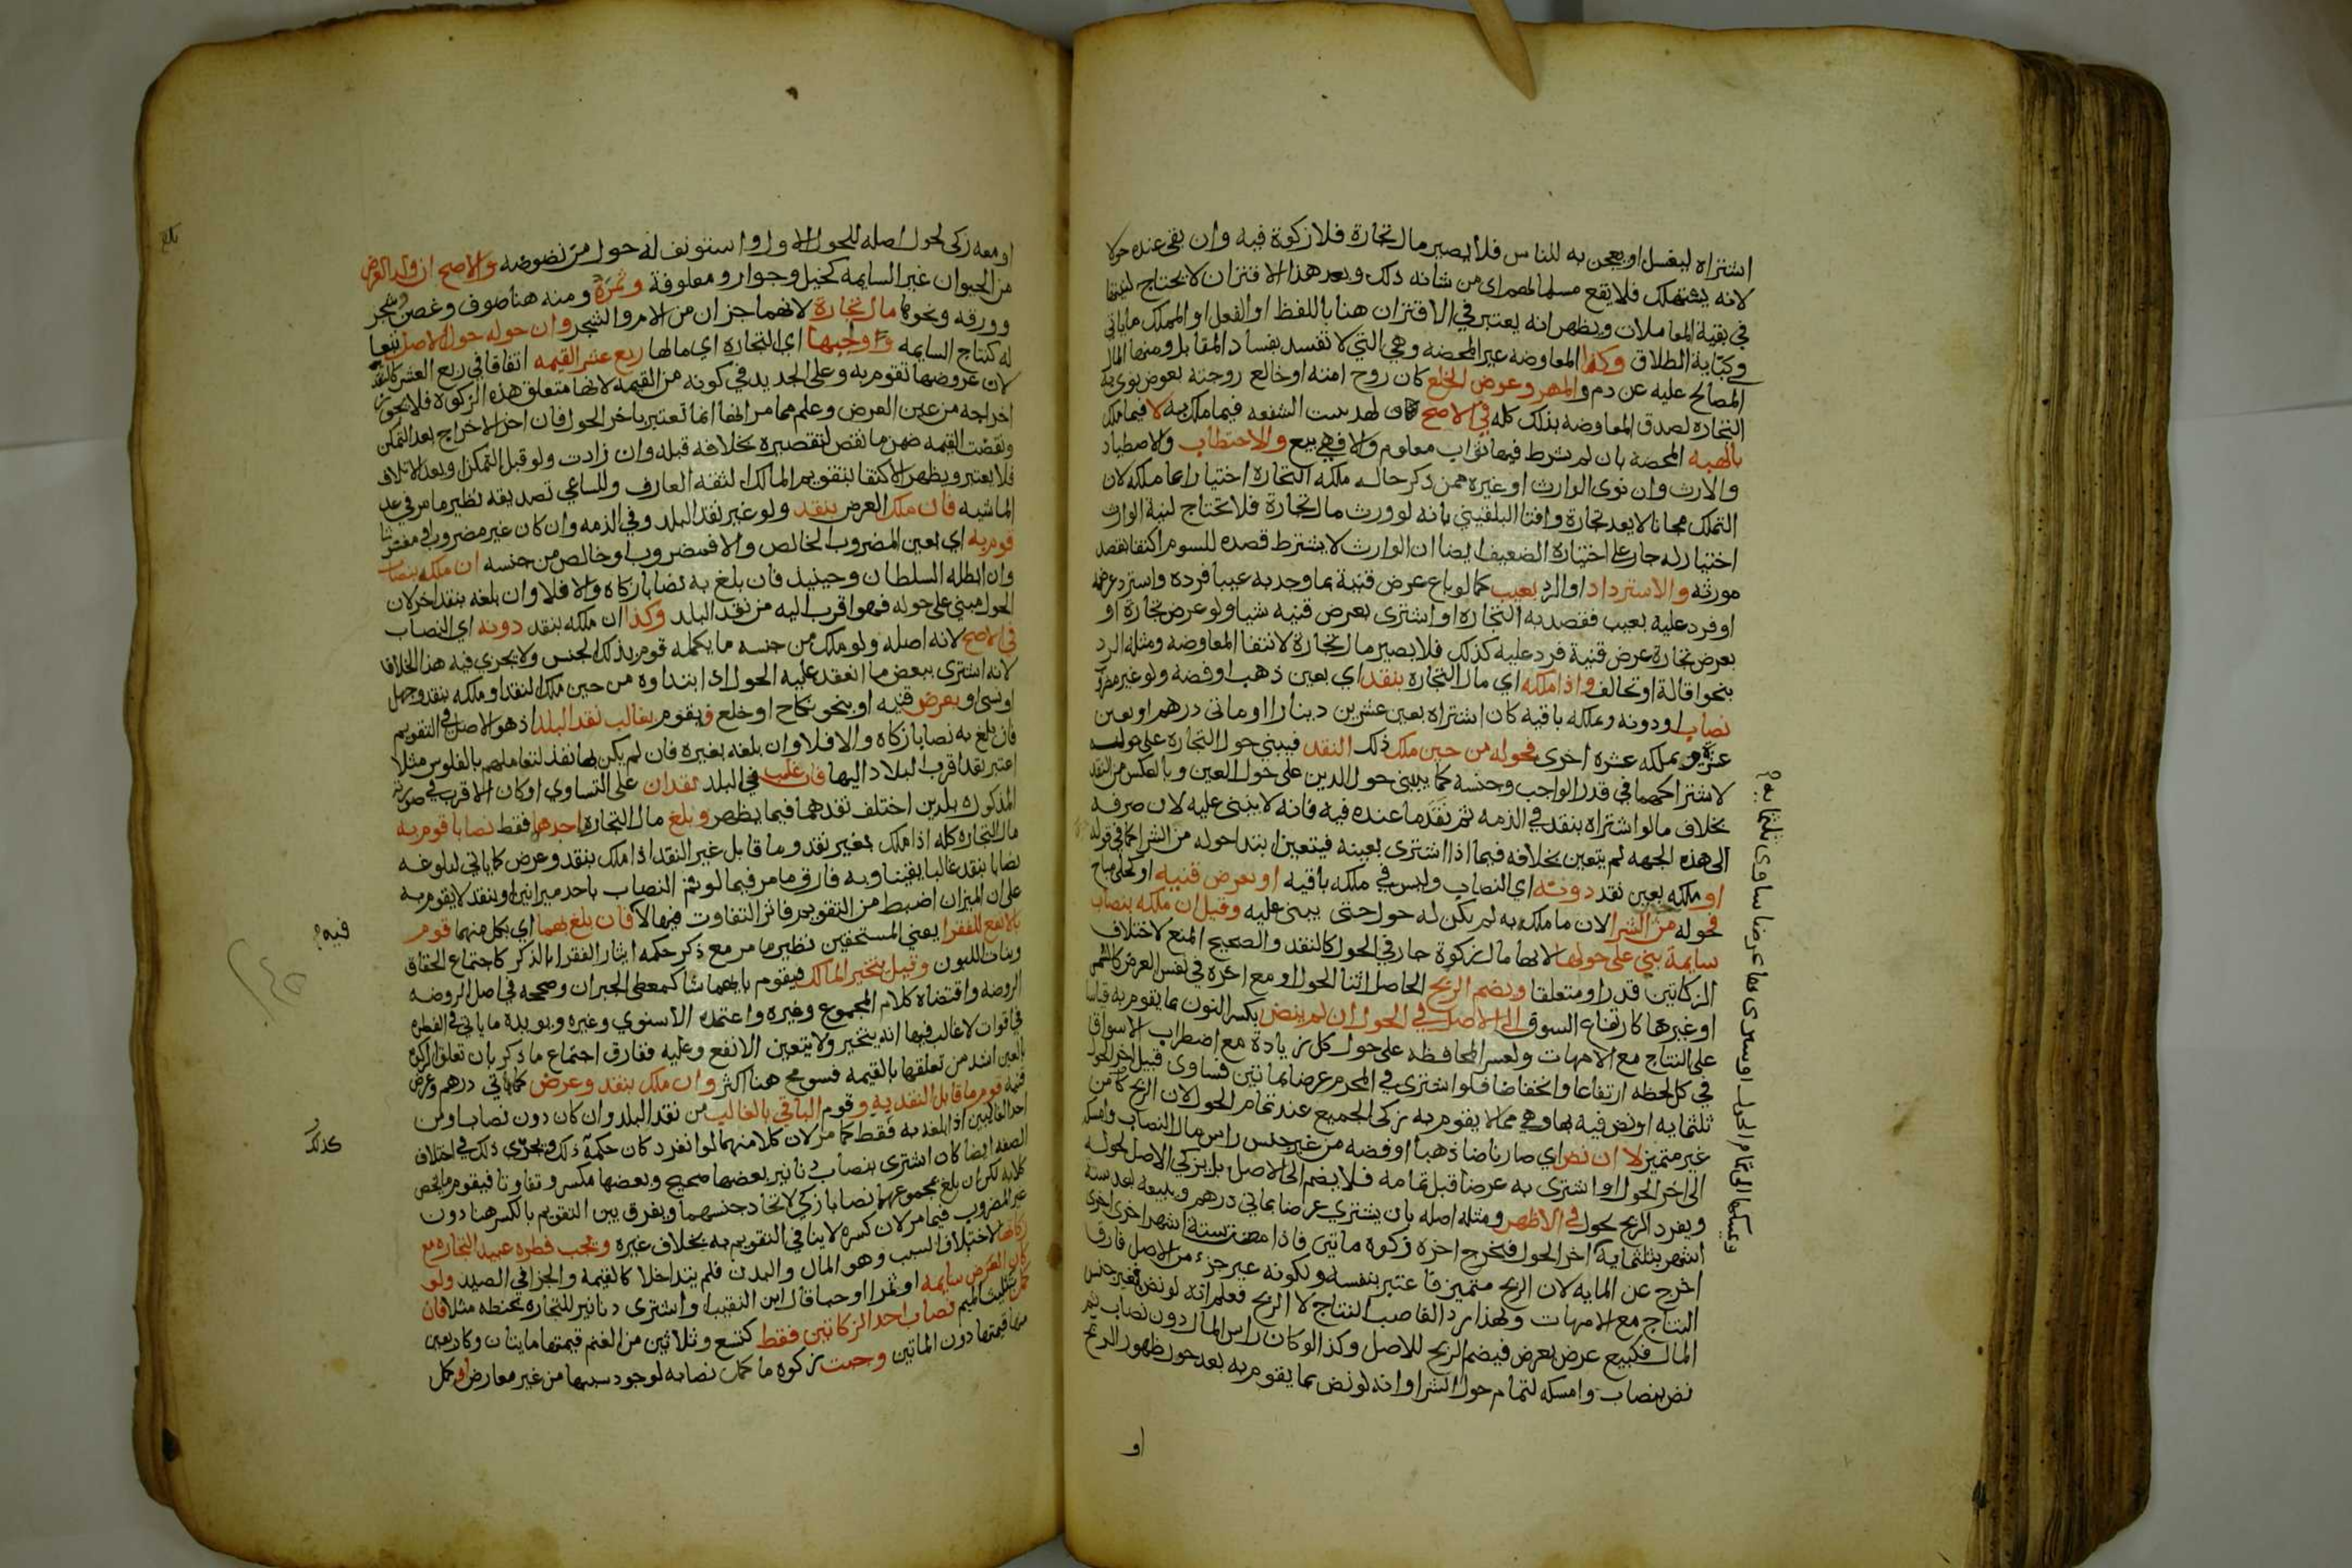 اشتراه ليغسل او يعجن به للناس فلا يصير مال تجارة فلا زكوة فيه وان بقى عنده حولا
لانه يستهلك فلا يقع مسلما لهم اى من شانه ذلك وبعد هذا الاقتران لا يحتاج لنيتها
في بقية المعاملات ويظهر انه يعتبر في الاقتران هنا باللفظ او الفعل او المملك ما ياتي
في كناية الطلاق وكذا المعاوضه غير المحضه وهي التي لا تفسد بفساد المقابل ومنها المال
المصالح عليه عن دم والمهر وعوض الخلع كان زوج امته او خالع زوجته بعوض نوى به
التجاره لصدق المعاوضه بذلك كله في الاصح ثبت الشفعه فيما ملك به لا فيما ملك
بالهبه المحضة بان لم تشرط فيها ثواب معلوم والا فهي بيع والاحتطاب والاصطياد
والارث وان نوى الوارث او غيره ممن ذكر حال ملكه التجارة اختيارا ما ملكه لان
التملك مجانا لا يعد تجارة وافتا البلقيني بانه لو ورث مال تجارة فلا تحتاج لنية الوارث
اختيار له جار على اختياره الضعيف ايضا ان الوارث لا يشترط قصده للسوم اكتفا بقصد
مورثه والاسترداد او الرد بعيب كما لو باع عرض قنية بما وجد به عيبا فرده واسترد عرضه
او فرد عليه بعيب فقصد به التجاره او اشترى بعرض قنيه شيا ولو عرض تجارة او
بعرض تجارة عرض قنية فرد عليه كذلك فلا يصير مال تجارة لانتفا المعاوضه ومثله الرد
بنحو اقالة او تحالف واذا ملكه اي مال التجاره بنقد اي بعين ذهب او فضه ولو غير مضروب
نصاب او دونه وملكه باقيه كان اشتراه بعين عشرين دينارا او مائي درهم او بعين
عشرة وبملكه عشره اخرى فحوله من حين ملك ذلك النقد فيبني حول التجارة على حوله
لاشتراكهما في قدر الواجب وجنسه كما يبنى حول الدين على حول العين وبالعكس من النقد
بخلاف ما لو اشتراه بنقد في الذمه ثم نقد ما عنده فيه فانه لا يبنى عليه لان صرفه
الى هذه الجهه لم يتعين بخلافه فيما اذا اشترى بعينه فيتعين ابتدا حوله من الشرا كما في قوله
او ملكه بعين نقد دونه اي النصاب وليس في ملكه باقيه او بعرض قنيه او كحلى مباح
فحوله من الشرا لان ما ملك به لم يكن له حول حتى يبنى عليه وقيل ان ملكه بنصاب
سايمة بني على حولها لانها مال زكوة جار في الحول كالنقد والصحيح المنع لاختلاف
الزكاتين قدرا ومتعلقا ويضم الربح الحاصل اثنا الحول او مع اخره في نفس العرض كالسمن
او غيرها كارتفاع السوق الى الاصل في الحول ان لم ينض بكسر النون بما يقوم به قياسا
على النتاج مع الامهات ولعسر المحافظه على حول كل زيادة مع اضطراب الاسواق
في كل لحظه ارتفاعا وانخفاضا فلو اشترى في المحرم عرضا بمائتين فساوى قبيل اخر الحول
ثلثمايه او نض فيه بها وهي مما لا يقوم به زكى الجميع عند تمام الحول لان الربح كامن
غير متميز لا ان نض اي صار ناضا ذهبا او فضه من غير جنس راس مال النصاب وامسكه
الى اخر الحول او اشترى به عرضا قبل تمامه فلا يضم الى الاصل بل يزكي الاصل لحوله
ويفرد الربح بحول في الاظهر ومثله اصله بان يشتري عرضا بمائي درهم ويبيعه بعد ستة
اشهر بثلثماية اخر الحول فيخرج اخره زكوة مايتي فاذا مضت ستة اشهر اخرى
اخرج عن المايه لان الربح متميز فاعتبر بنفسه ولكونه غير جزء من الاصل فارق
النتاج مع الامهات ولهذا رد الغاصب النتاج لا الربح فعلم انه لو نض بغير جنس
المال فكبيع عرض بعرض فيضم الربح للاصل وكذا لو كان راس المال دون نصاب ثم
نض بنصاب وامسكه لتمام حول الشرا وانه لو نض بما يقوم به بعد حول ظهور الربح
او
او معه زكى لحول اصله للحول الاول واستونف له حول من نضوضه والاصح ان ولد العرض
من الحيوان غير السايمه كخيل وجوار ومعلوفة وثمرة ومنه هنا صوف وغصن شجر
وورقه ونحوها مال تجارة لانهما جزان من الام والشجر وان حوله حول الاصل تبعا
له كنتاج السايمه وواجبها اي التجاره اي مالها ربع عشر القيمه اتفاقا في ربع العشر كالنقد
لان عروضها تقوم به وعلى الجديد في كونه من القيمه لانها متعلق هذه الزكوة فلا يجوز
اخراجه من عين العرض وعلم مما مر انها انما تعتبر باخر الحول فان اخر الاخراج بعد التمكن
ونقصت القيمه ضمن ما نقص لتقصيره بخلافه قبله وان زادت ولو قبل التمكن او بعد الاتلاف
فلا يعتبر ويظهر الاكتفا بتقويم المالك الثقه العارف وللساعي تصديقه نظير ما مر في عد
الماشيه فان ملك العرض بنقد ولو غير نقد البلد وفي الذمه وان كان غير مضروب
قوم به اي بعين المضروب الخالص والا فمضروبا وخالص من جنسه ان ملكه بنصاب
وان ابطله السلطان وحينيذ فان بلغ به نصابا زكاه والا فلا وان بلغه بنقد اخر لان
الحول مبني على حوله فهو اقرب اليه من نقد البلد وكذا ان ملكه بنقد دونه اي النصاب
في الاصح لانه اصله ولو ملك من جنسه ما يكمله قوم بذلك الجنس ولا يجرى فيه هذا الخلاف
لانه اشترى ببعض ما انعقد عليه الحول اذا ابتداوه من حين ملك النقد او ملكه بنقد وجهل
او نسي او بعرض قنيه او بنحو نكاح او خلع فيقوم بغالب نقد البلد اذ هو الاصل في التقويم
فان بلغ به نصابا زكاه والا فلا وان بلغه بغيره فان لم يكن بها نقد لتعاملهم بالفلوس مثلا
اعتبر نقد اقرب البلاد اليها فان غلب في البلد نقدان على التساوي او كان الاقرب في صورته
المذكوره بلدين اختلف نقدهما فيما يظهر وبلغ مال التجاره باحدهما فقط نصابا قوم به
مال التجاره كله اذا ملك بغير نقد وما قابل غير النقد اذا ملك بنقد وعرض كما ياتي لبلوغه
نصابا بنقد غالب يقينا وبه فارق ما مر فيما لو تم النصاب باحد ميزانين او بنقد لا يقوم به
على ان الميزان اضبط من التقويم فاثر التفاوت فيها لا فان بلغ بهما اي بكل منهما قوم
بالانفع للفقرا يعني المستحقين نظير ما مر مع ذكر حكمه ايثار الفقرا بالذكر كاجتماع الحقاق
وبنات اللبون وقيل يتخير المالك فيقوم بايهما شا كمعطى الجبران وصححه في اصل الروضه
الروضه واقتضاه كلام المجموع وغيره واعتمده الاسنوي وغيره ويويده ما ياتي في الفطره
في اقوات لا غالب فيها انه يتخير ولا يتعين الانفع وعليه ففارق اجتماع ما ذكر بان تعلق الزكوة
بالعين اشد من تعلقها بالقيمه فسومح هنا اكثر وان ملك بنقد وعرض كمائتي درهم وعرض
قنية قوم ما قابل النقد به وقوم الباقي بالغالب من نقد البلد وان كان دون نصاب ومن
احد الغالبين اذا بلغه به فقط كما مر لان كلا منهما لو انفرد كان حكمه ذلك ويجرى ذلك في اختلاف
الصفه ايضا كان اشترى بنصاب دنانير بعضها صحيح وبعضها مكسر وتفاوتا فيقوم ما يخص
كلا به لكن ان بلغ بمجموعهما نصابا زكي لاتحاد جنسهما ويفرق بين التقويم بالكسر هنا دون
غير المضروب فيما مر لان كسره لا ينافي التقويم به بخلاف غيره وتجب فطرة عبيد التجاره مع
زكاتها لاختلاف السبب وهو المال والبدن فلم يتداخلا كالقيمه والجزا في الصيد ولو
كان العرض سايمه او ثمرا او حبا قال ابن النقيب او اشترى دنانير للتجاره بحنطه مثلا فان
كمل بتثليث الميم نصاب احد الزكاتين فقط كتسع وثلاثين من الغنم قيمتها مايتان وكاربعين
منها قيمتها دون المائتين وجبت زكوة ما كمل نصابه لوجود سببها من غير معارض او كمل
فيه
كذلك